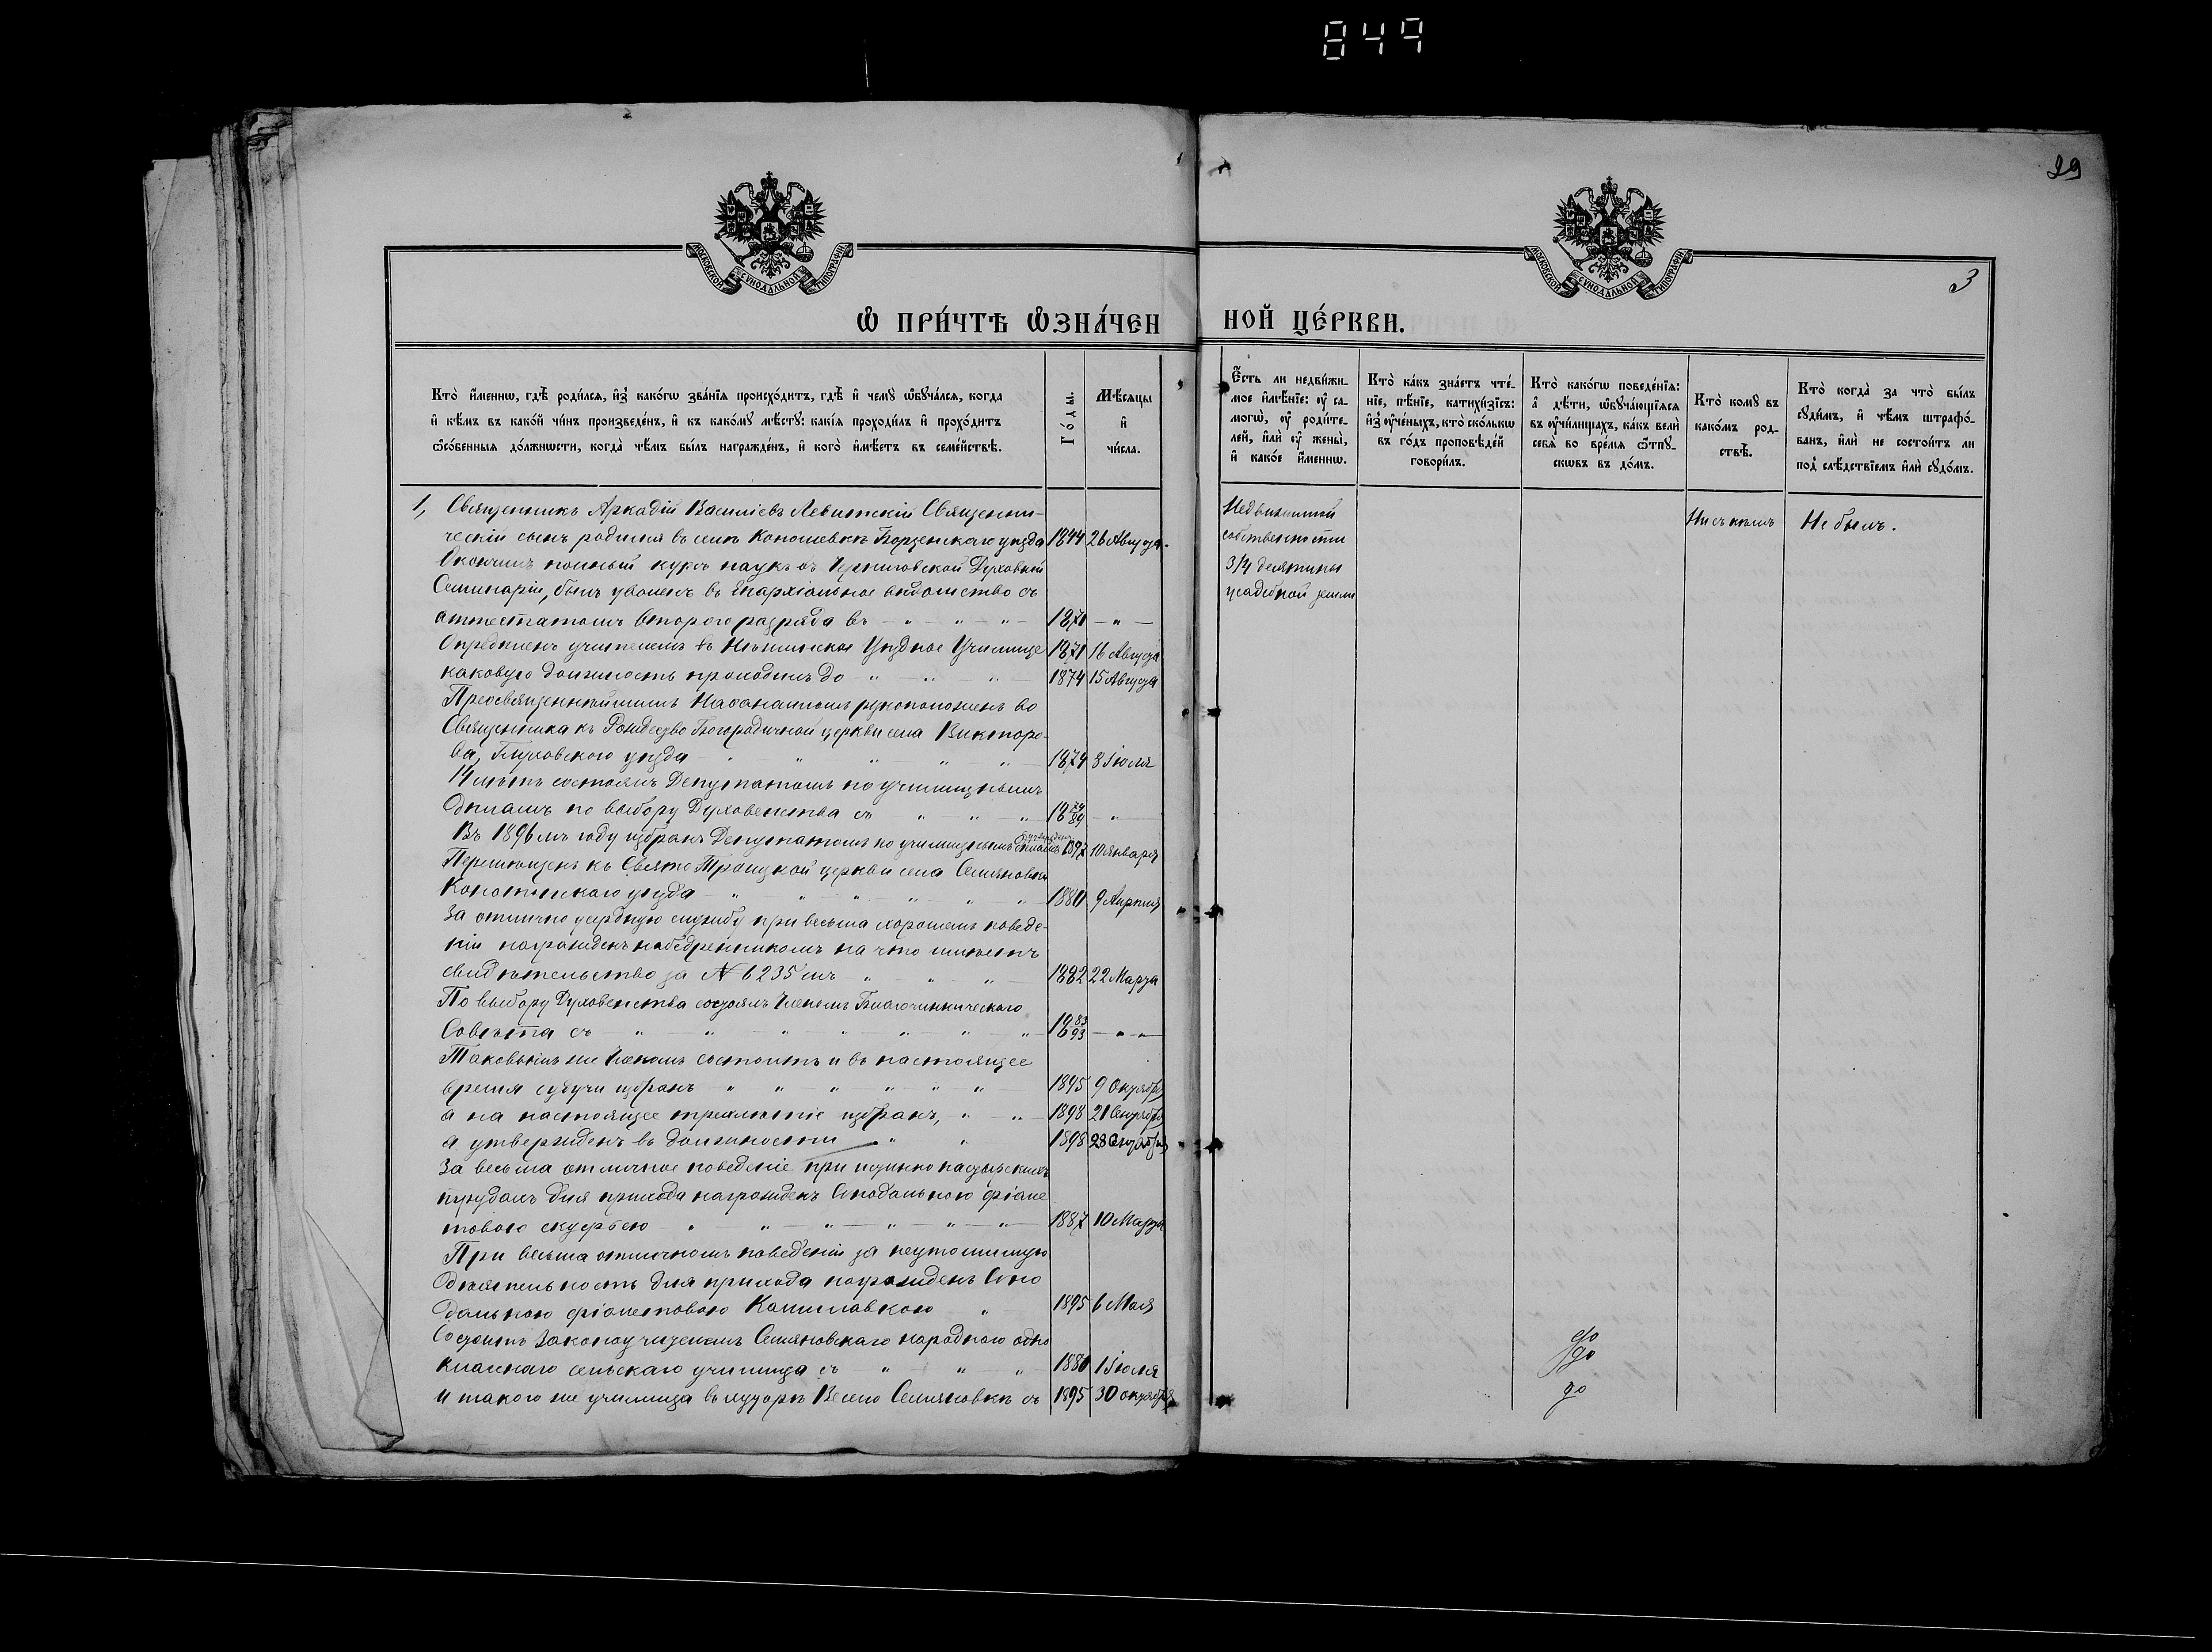 849
29
МОСКОВСКОЙ СѴНОДАЛЬНОЙ ТИПОГРАФІИ
МОСКОВСКОЙ СѴНОДАЛЬНОЙ ТИПОГРАФІИ
3
Ѡ ПРИ́ЧТѢ ѠЗНА́ЧЕННОЙ ЦЕ́РКВИ.
Кто̀ и҆́меннѡ, гдѣ̀ роди́лсѧ, и҆з̾ како́гѡ зва́нїѧ происхо́дитъ, гдѣ̀ и҆ чемꙋ̀ ѡ҆бꙋча́лсѧ, когда
и҆ кѣ́мъ въ како́й чи́нъ произведе́нъ, и҆ къ како́мꙋ мѣ́стꙋ: какі̑ѧ проходи́лъ и҆ прохо́дитъ
ѻ҆со́бенныѧ до́лжнѡсти, когда̀ чѣ́мъ бы́лъ награжде́нъ, и҆ кого̀ и҆мѣ́етъ въ семе́йствѣ.
Го́ды.
Мѣ́сѧцы
и҆
чи́сла.
Е҆́сть ли недви́жи-
мое и҆мѣ́нїе: ᲂу҆ са-
могѡ̀, ᲂу҆ роди́те-
лей, и҆лѝ ᲂу҆ жены̀,
и҆ како́е и҆́меннѡ.
Кто̀ ка́къ зна́етъ чте́-
нїе, пѣ́нїе, катихи́зїсъ:
и҆з̾ ᲂу҆че́ныхъ, кто̀ ско́лькѡ
въ го́дъ проповѣ́дей
говори́лъ.
Кто̀ како́гѡ поведе́нїѧ:
а҆ дѣ́ти, ѡ҆бꙋча́ющїѧсѧ
въ ᲂу҆чи́лищахъ, ка́къ велѝ
себѧ̀ во вре́мѧ ѿпꙋ-
скѡвъ въ до́мъ.
Кто̀ комꙋ̀ въ
како́мъ род-
ствѣ̀.
Кто̀ когда̀ за что̀ бы́лъ
сꙋди́мъ, и҆ чѣ́мъ штрафо́-
ванъ, и҆лѝ не состои́тъ ли
под̾ слѣ́дствїемъ и҆лѝ сꙋдо́мъ.
1, Священникъ Аркадій Василіевъ Левитскій Священни-
ческій сынъ родился въ селѣ Коношевкѣ Борзенскаго уѣзда 1844 26 Августа.
Окончилъ полный курсъ наукъ въ Черниговской Духовной
Семинаріи, былъ уволенъ въ Епархіальное вѣдомство съ
аттестатомъ втораго разряда въ 1871 — " —
Опредѣленъ учителемъ въ Нѣжинское Уѣздное Училище 1871 16 Августа
каковую должность проходилъ до 1874 15 Августа
Преосвященнѣйшимъ Наѳанаиломъ рукоположенъ во
Священника къ Рождество Богородичной церкви села Викторо-
ва, Глуховскаго уѣзда 1874 8 Іюля
14 лѣтъ состоялъ Депутатомъ по училищнымъ
дѣламъ по выбору Духовенства съ 18 74/89 — " —
Въ 1896 мъ году избранъ Депутатомъ по училищнымъ дѣламъ утвержденъ 1897 10 января
Перемѣщенъ къ Свято Троицкой церкви села Семяновки
Конотопскаго уѣзда 1880 9 Апрѣля
За отлично усердную службу при весьма хорошемъ поведе-
ніи награжденъ набедренникомъ на что имѣетъ
свидѣтельство за № 6235 мъ 1882 22 Марта
По выбору Духовенства состоялъ Членомъ Благочинническаго
Совѣта съ 18 83/93 — " —
Таковымъ же Членомъ состоитъ и въ настоящее
время будучи избранъ 1895 9 Октября
а на настоящее трехлѣтіе избранъ, 1898 21 Сентября
а утвержденъ въ должности 1898 28 Октября
За весьма отличное поведеніе при истинно пастырскихъ
трудахъ для прихода награжденъ Синодальною фіоле
товою скуфьею 1887 10 Марта
При весьма отличномъ поведеніи за неутомимую
дѣятельность для прихода награжденъ Сино
дальною фіолетовою Камилавкою 1895 6 Мая
Состоитъ Законоучителемъ Семяновскаго народнаго одно
класнаго сельскаго училища съ 1880 1 Іюля
и такого же училища въ хуторѣ Весело Семяновкѣ съ 1895 30 октября
Недвижимой
собственности
3/4 десятины
усадебной земли
Ни съ кѣмъ
Не былъ.